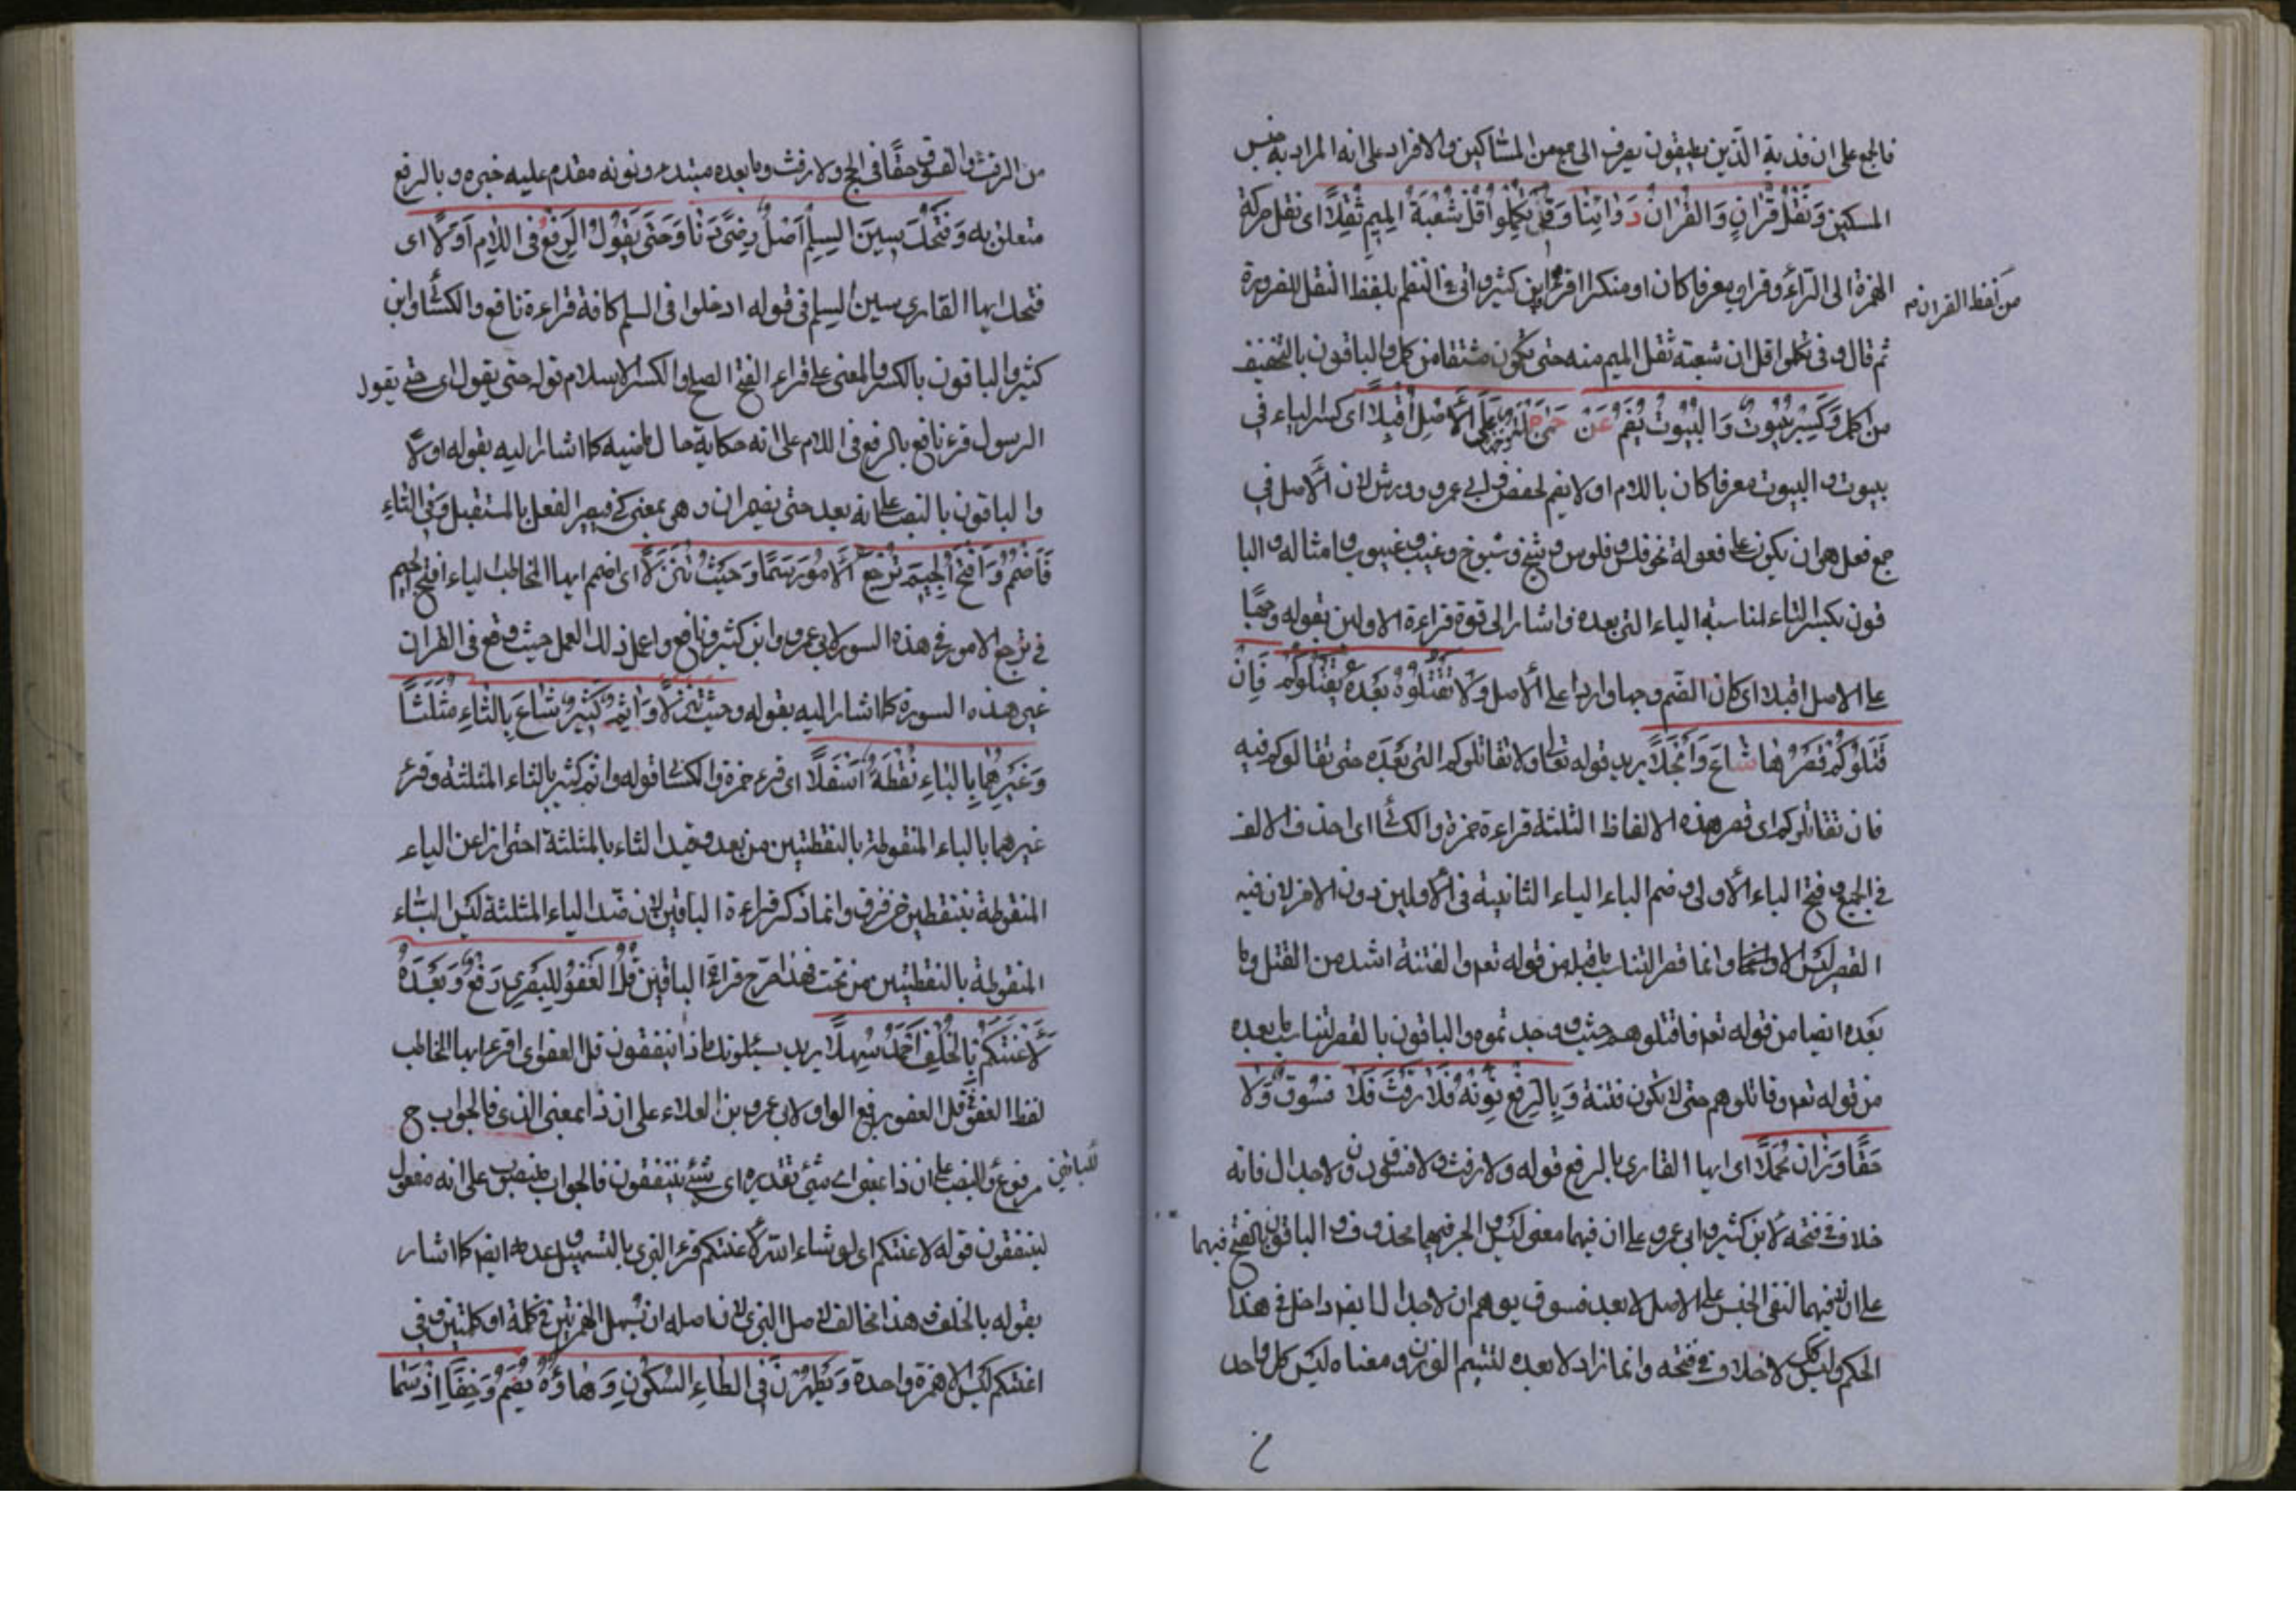 فالجمع على ان فدية الذين يطيقون يصرف الى جمع من المساكين والافراد على انه المراد به جنس
المسكين وَنَقْلُ قُرَانٍ وَالْقُرَانُ دَوَاؤنَا وَفِى تُكْمِلُوا قُلْ شُعْبَةُ الْمِيمَ ثَقَّلَا اى نقل حركة
الهمزة الى الراء وقراءن معرفا كان او منكرا ابن كثير واتى فى النظم بلفظ النقل للضرورة
من لفظ القران م
ثم قال وفى تكملوا قل ان شعبة ثقل الميم منه حتى يكون مشتقا من كمل والباقون بالتخفيف
من اكمل وَكَسْرُ بُيُوتٍ وَالْبُيُوتُ يُضَمُّ عَنْ حِمَى جِلَّةٍ وَجْهًا عَلَى الْأَصْلِ أَقْبَلَا اى كسر الباء فى
بيوت والبيوت معرفا كان باللام اولا يضم لحفص وابى عمرو وورش لان الاصل فى
جمع فعل هو ان يكون على فعولة نحو فلس وفلوس وشيخ وشيوخ وغيب وغيوب وامثاله والبا
قون بكسر الباء لمناسبة الياء التى بعده واشار الى قوة قراءة الاولين بقوله وجها
على الاصل اقبلا اى كان الضم وجها واردا على الاصل وَلَا تَقْتُلُوهُمْ بَعْدَهُ يَقْتُلُوكُمُ فَاِنْ
قَتَلُوكُمْ قَصْرُهَا شَاعَ وَانْجَلَا يريد قوله تعالى ولا تقاتلوكم التى بعده حتى يقاتلوكم فيه
فان تقاتلوكم اى قصر هذه الالفاظ الثلثة قراءة حمزة والكسائى اى احذف الالف
فى الجميع وفتح الياء الاولى وضم الباء الياء الثانية فى الاولين دون الاخر لان فيه
القصر ليس الا وانما قصر لتناسب ما قبله من قوله تعم والفتنة اشد من القتل وما
بعده ايضا من قوله تعم فاقتلوهم حيث وجدتموه والباقون بالقصر لتناسب ما بعده
من قوله تعم وقاتلوهم حتى لا تكون فتنة وَبِالرَّفْعِ نَوِّنْهُ فَلَا رَفَثٌ فَلَا فُسُوقٌ وَلَا
حَقًّا وَزَانَ مُحَمَّلَا اى ايها القارى بالرفع قوله ولا رفث ولا فسوق دون ولا جدال فانه
خلاف فى فتحه لابن كثير وابى عمرو على ان فيهما معنى ليس والخبر فيهما محذوف والباقون بالفتح فيهما
على ان فيهما لنفى الجنس على الاصل لا بعد فسوق يوهم ان لا جدال ايضا داخل فى هذا
الحكم وليس كك لا خلاف فى فتحه وانما زاد لا بعده لتتميم الوزن ومعناه ليس كل واحد
من الرفث والفسوق حقا فى الحج ولا رفث وما بعده مبتدء ونونه مقدم عليه خبره وبالرفع
متعلق به وَفَتْحُكَ سِينَ السِّلْمِ أَصْلُ رِضًى دَنَا وَحَتَّى يَقُولُ الرَّفْعُ فِى اللَّامِ أُوِّلَا اى
فتحك ايها القارى سين السلم فى قوله ادخلوا فى السلم كافة قراءة نافع والكسائى وابن
كثير والباقون بالكسر والمعنى على قراءة الفتح الصلح والكسر الاسلام قوله حتى يقول اى حتى يقول
الرسول قرء نافع بالرفع فى اللام على انه حكاية حال ماضيه كما اشار اليه بقوله اولا
والباقون بالنصب على انه بعد حتى يضمر ان وهى بمعنى كى فيصير الفعل بالمستقبل وَفِى التَّاءِ
فَاضْمُمْ وَافْتَحِ الْجِيمَ تُرْجَعُ الْأُمُورُ سَمَا وَحَيْثُ تَنَزَّلَا اى اضمم ايها المخاطب لياء افتح الجيم
فى ترجع الامور فى هذه السورة لابى عمرو وابن كثير ونافع واعمل ذلك العمل حيث وقع فى القران
غير هذه السورة كما اشار اليه بقوله وحيث تنزلا وَاِثْمٌ كَثِيرٌ شَاعَ بِالثَّاءِ مُثَلَّثًا
وَغَيْرُهُمَا بِالْبَاءِ نُقْطَةٌ اَسْفَلَا اى قرء حمزة والكسائى قوله واثم كثير بالثاء المثلثة وقرء
غيرهما بالباء المنقوطة بالنقطتين من بعد وقيد الثاء بالمثلثة احترازا عن الياء
المنقوطة بنقطتين من فوق وانما ذكر قراءة الباقين لان ضد الياء المثلثة ليس الباء
المنقوطة بالنقطتين من تحت فهذا صرح قراءة الباقين قُلِ الْعَفْوُ لِلْبَصْرِى رَفْعٌ وَبَعْدَهُ
لَأَعْنَتَكُمْ بِالْخُلْفِ أَحْمَدُ سَهَّلَا يريد يسئلونك ماذا ينفقون قل العفو اى اقرء ايها المخاطب
لفظ العفو فى قل العفو برفع الواو لابى عمرو بن العلاء على ان ذا بمعنى الذى فالجواب ح
مرفوع والنصب على ان ذا بمعنى اى شئ تقديره اى شئ ينفقون فالجواب منصوب على انه مفعول
للباقين
لينفقون قوله لاعنتكم اى لو شاء الله لاعنتكم قرء البزى بالتسهيل وعدمه ايضا كما اشار
بقوله بالخلف وهذا مخالف لاصل البزى لان اصله ان يسهل الهمزتين فى كلمة او كلمتين وفى
اعنتكم ليس الا همزة واحدة وَيَطْهُرْنَ فِى الطَّاءِ السُّكُونُ وَهَاؤُهُ يُضَمُّ وَخَفَّا اِذْ سَمَا